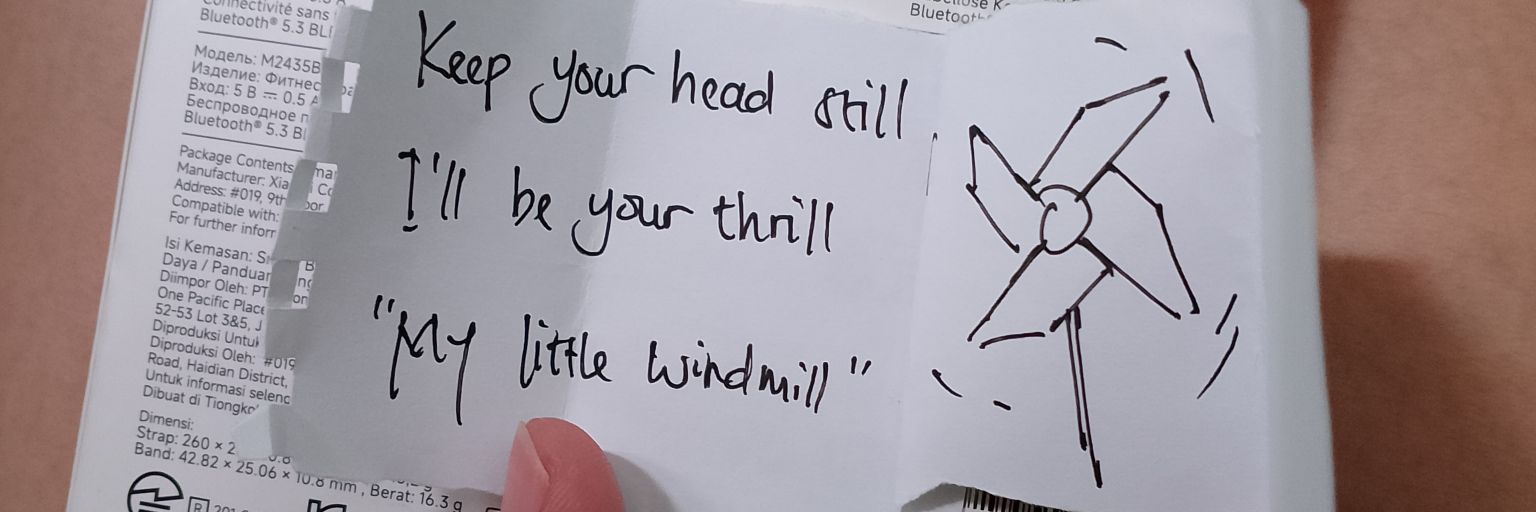 Connectivité sans
Bluetooth® 5.3
Bluetooth
Модель: M2435B
Изделие: Фитнес
Вход: 5 В ⎓ 0.5
Беспроводное
Bluetooth® 5.3
Package Contents
Manufacturer:
Address: #019, 9th
Compatible with:
For further
Isi Kemasan:
Daya / Panduan
Diimpor Oleh: PT
One Pacific Place
52-53 Lot 3&5, J
Diproduksi Untuk
Diproduksi Oleh: #019
Road, Haidian District,
Untuk informasi
Dibuat di
Dimensi:
Strap: 260 ×
Band: 42.82 × 25.06 × 10.8 mm, Berat: 16.3 g
R
Keep your head still,
I'll be your thrill
"My little windmill"